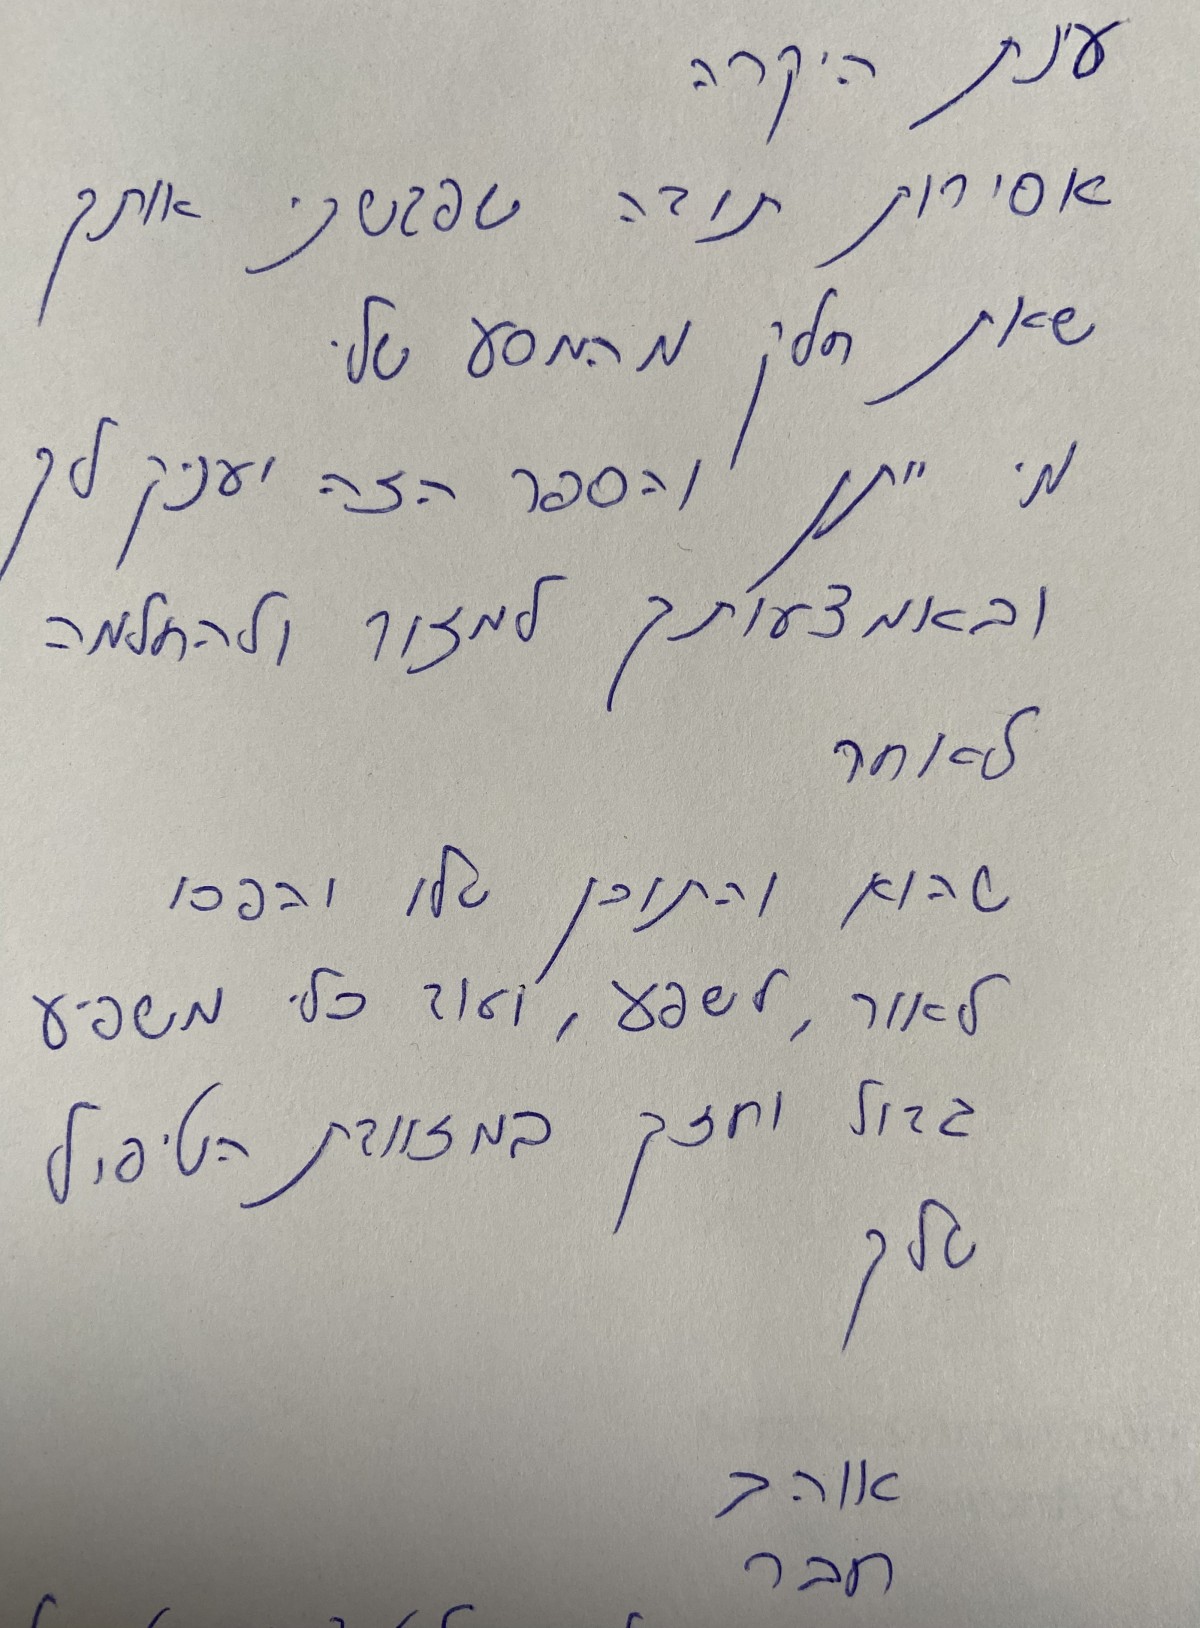 ענת היקרה
אסירות תודה שפגשתי אותך
שאת חלק מהמסע שלי
מי ייתן והספר הזה יעניק לך
ובאמצעותך למזור ולהחלמה
לאחר
שהוא והתוכן שלו והפכו
לאור, לשפע, ועוד כלי משפיע
גדול וחזק במזוודת הטיפול
שלך
אוהב
חבר